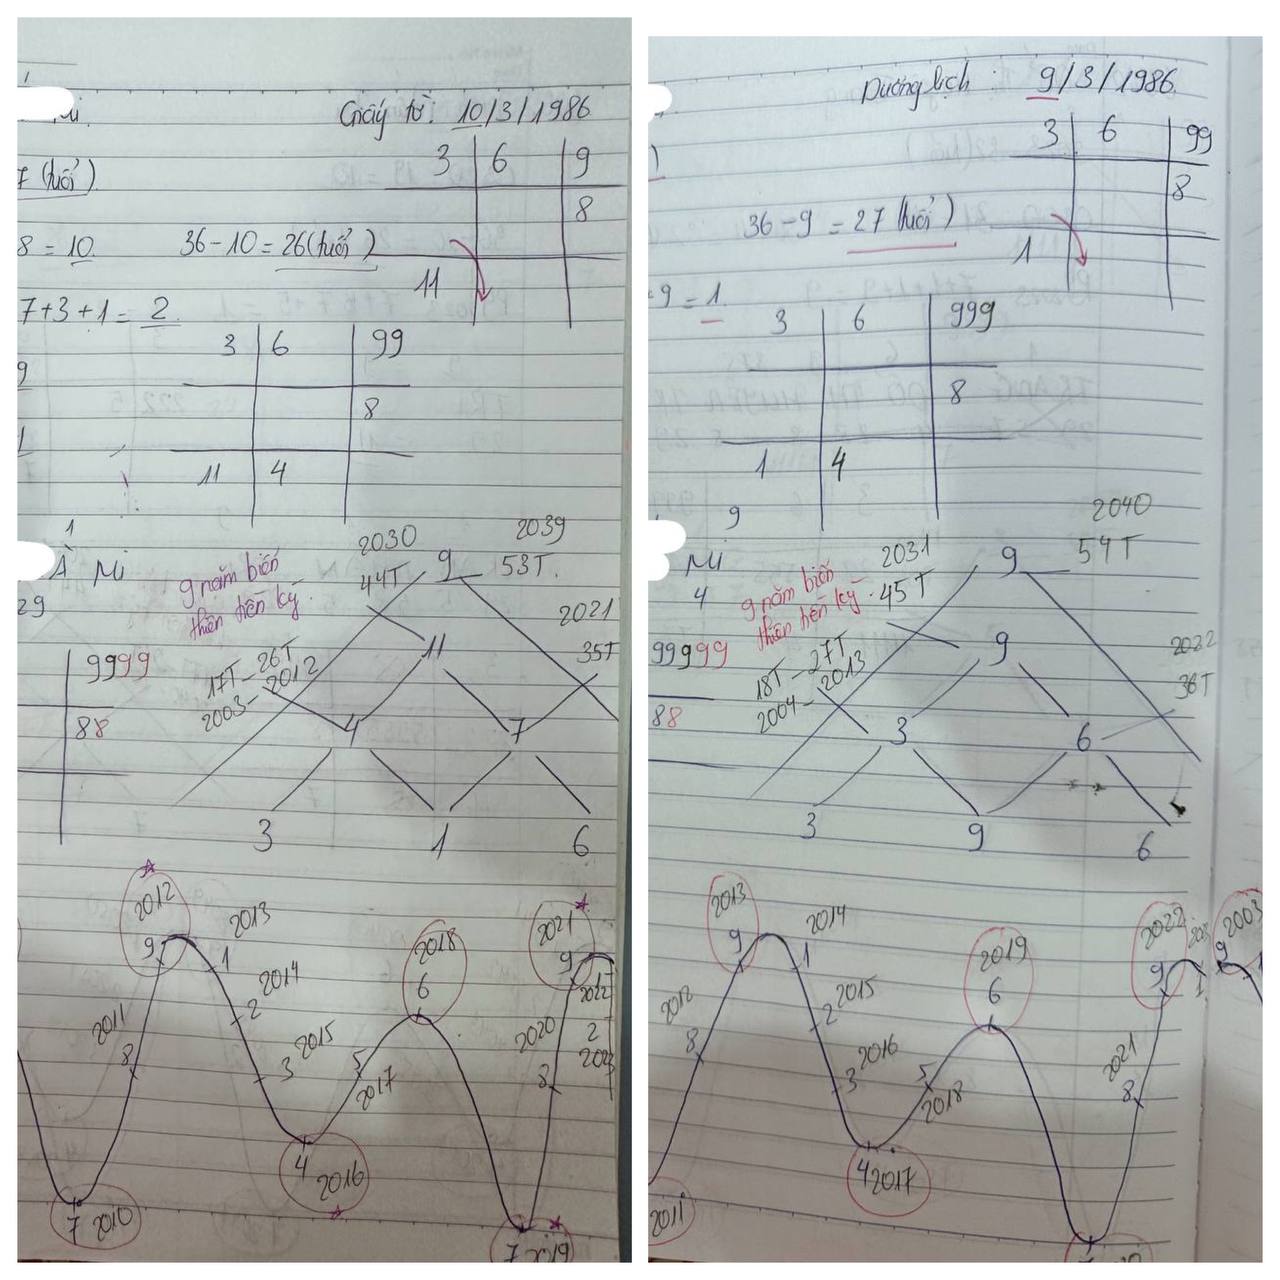 Giấy tờ: 10/3/1986
3 6 9
7 (tuổi)
8
8 = 10. 36 - 10 = 26 (tuổi)
11
7+3+1 = 2
3 6 99
9
8
1
11 4
1
2030 2039
À Mi 9 năm biến 44T 9 53T.
29 thiên tiền kỳ. 2021
9999 17T - 26T 11 35T
88 2003 - 2012
4 7
3 1 6
2012 2013 2018 2021
9 1 6 9
2011 2 2014 2020 2022
8 3 2015 5 2017 8 2 2023
4 2016
7 2010 7 2019
Dương lịch : 9/3/1986.
3 6 99
8
36 - 9 = 27 (tuổi)
1
9 = 1
3 6 999
8
1 4
9
2040
Mi 2031 9 54T
4 9 năm biến 45T
thiên tiền kỳ.
99999 18T - 27T 9 2022
88 2004 - 2013 36T
3 6
3 9 6
2013 2014 2019 2022 2003
9 1 6 9 1 9
2012 2 2015 2021
8 3 2016 5 2018 8
4 2017
2011